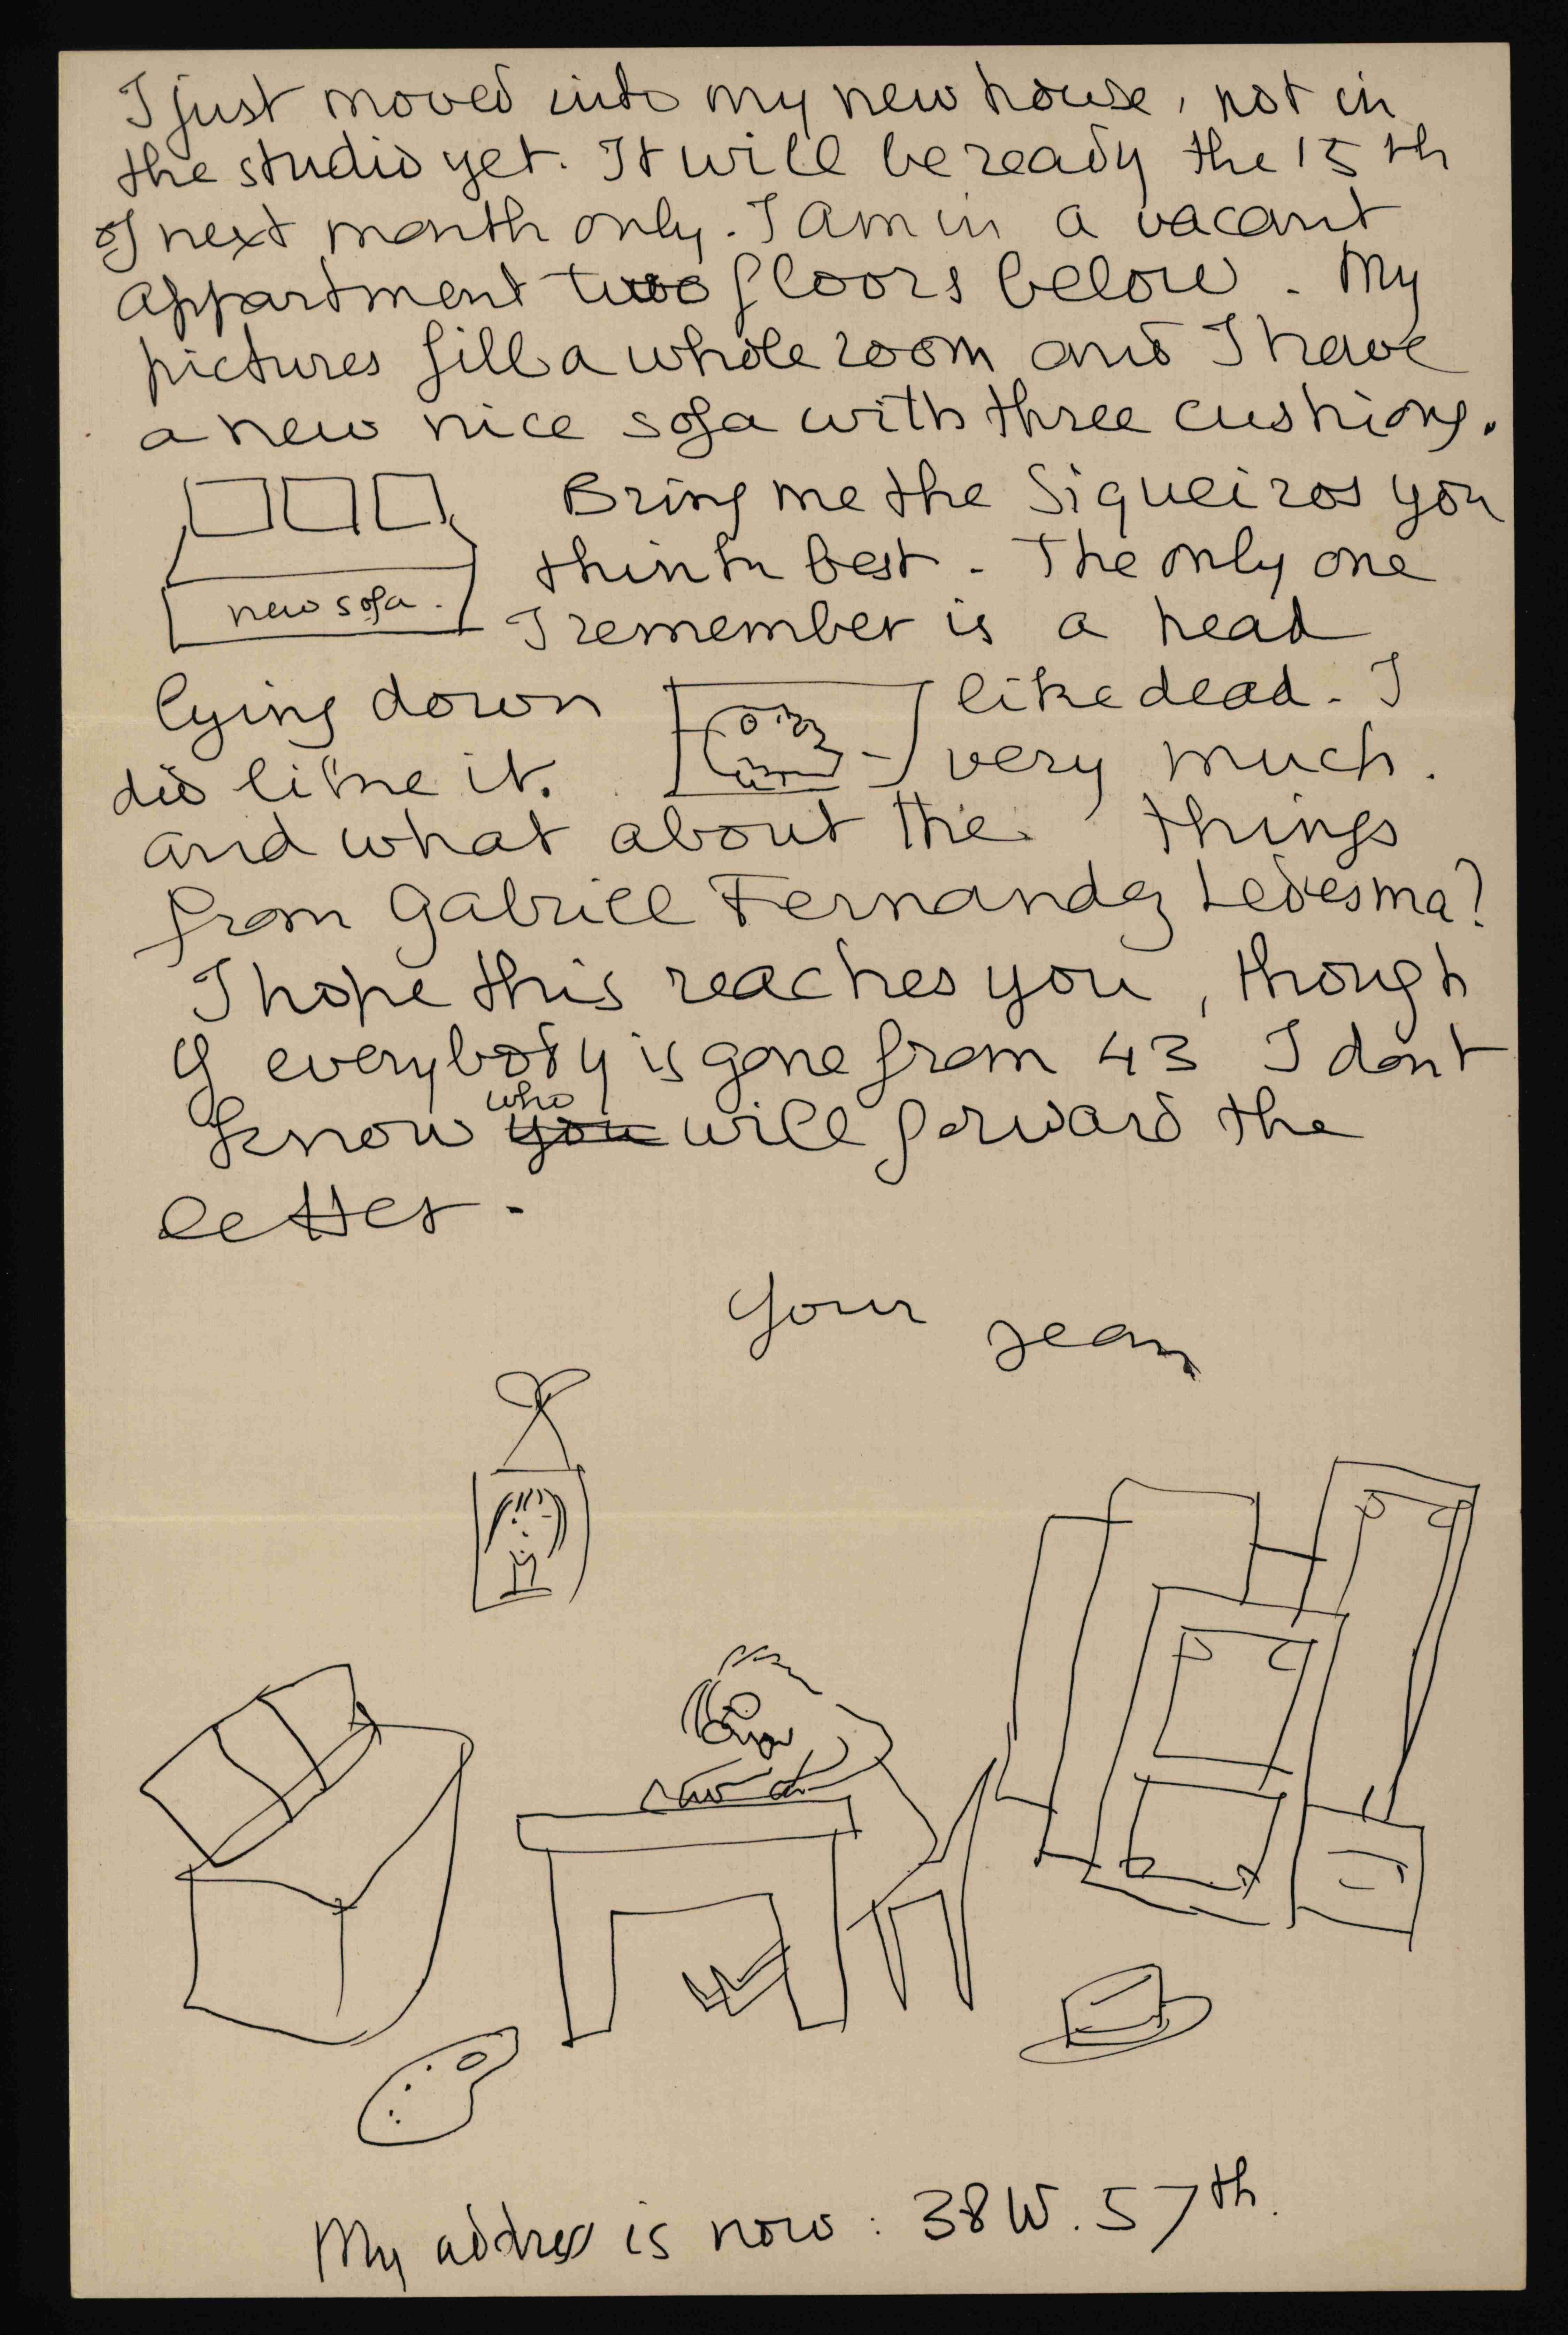 I just moved into my new house, not in
the studio yet. It will be ready the 15th
of next month only. I am in a vacant
appartment two floors below. My
pictures fill a whole room and I have
a new nice sofa with three cushions.
new sofa.
Bring me the Siqueiros you
think best. The only one
I remember is a head
lying down like dead. I
did like it. very much.
and what about the things
from Gabriel Fernandez Ledesma?
I hope this reaches you, though
if everybody is gone from 43 I dont
know you who will forward the
letter.
Your Jean
My address is now: 38 W. 57th.